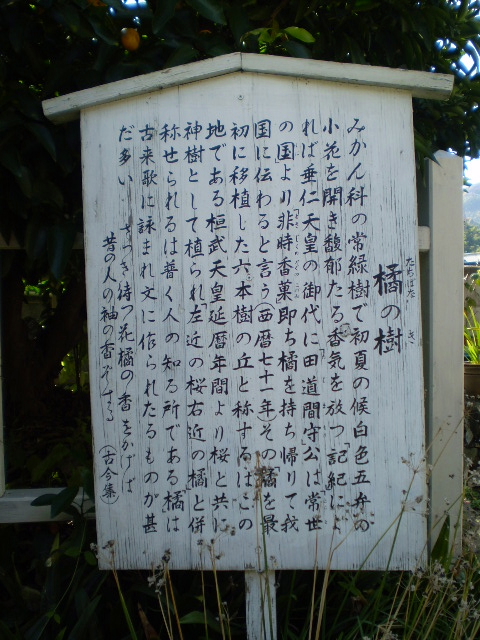 橘の樹
たちばな き
みかん科の常緑樹で初夏の候白色五弁の
小花を開き馥郁たる香気を放つ「記紀」によ
れば垂仁天皇の御代に田道間守公は常世
の国より非時香菓即ち橘を持ち帰りて我
国に伝わると言う西暦七十一年その「橘」を最
初に移植した六本樹の丘と称するはこの
地である桓武天皇延暦年間より桜と共に
神樹として植られ「左近の桜右近の橘」と併
称せられるは普く人の知る所である「橘」は
古来歌に詠まれ文に作られたるものが甚
だ多い
さつき待つ花橘の香をかげば
昔の人の袖の香ぞする (古今集)